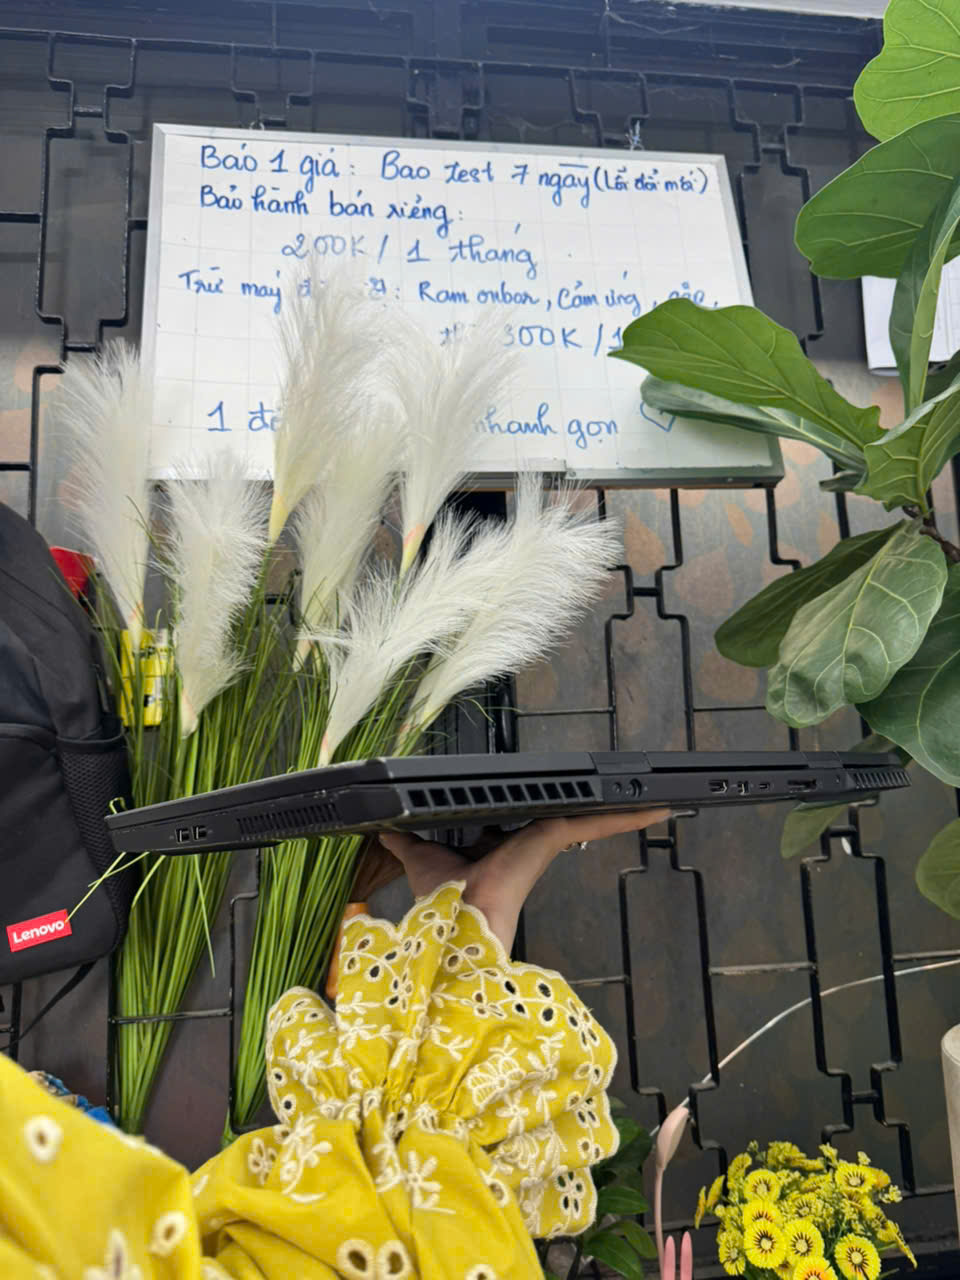 Báo 1 giá : Bao test 7 ngày (Lỗi đổi mới)
Bảo hành bán riêng :
200K / 1 tháng
Trừ máy : Ram onbar, Cảm ứng,
300K / 1
1 nhanh gọn
Lenovo